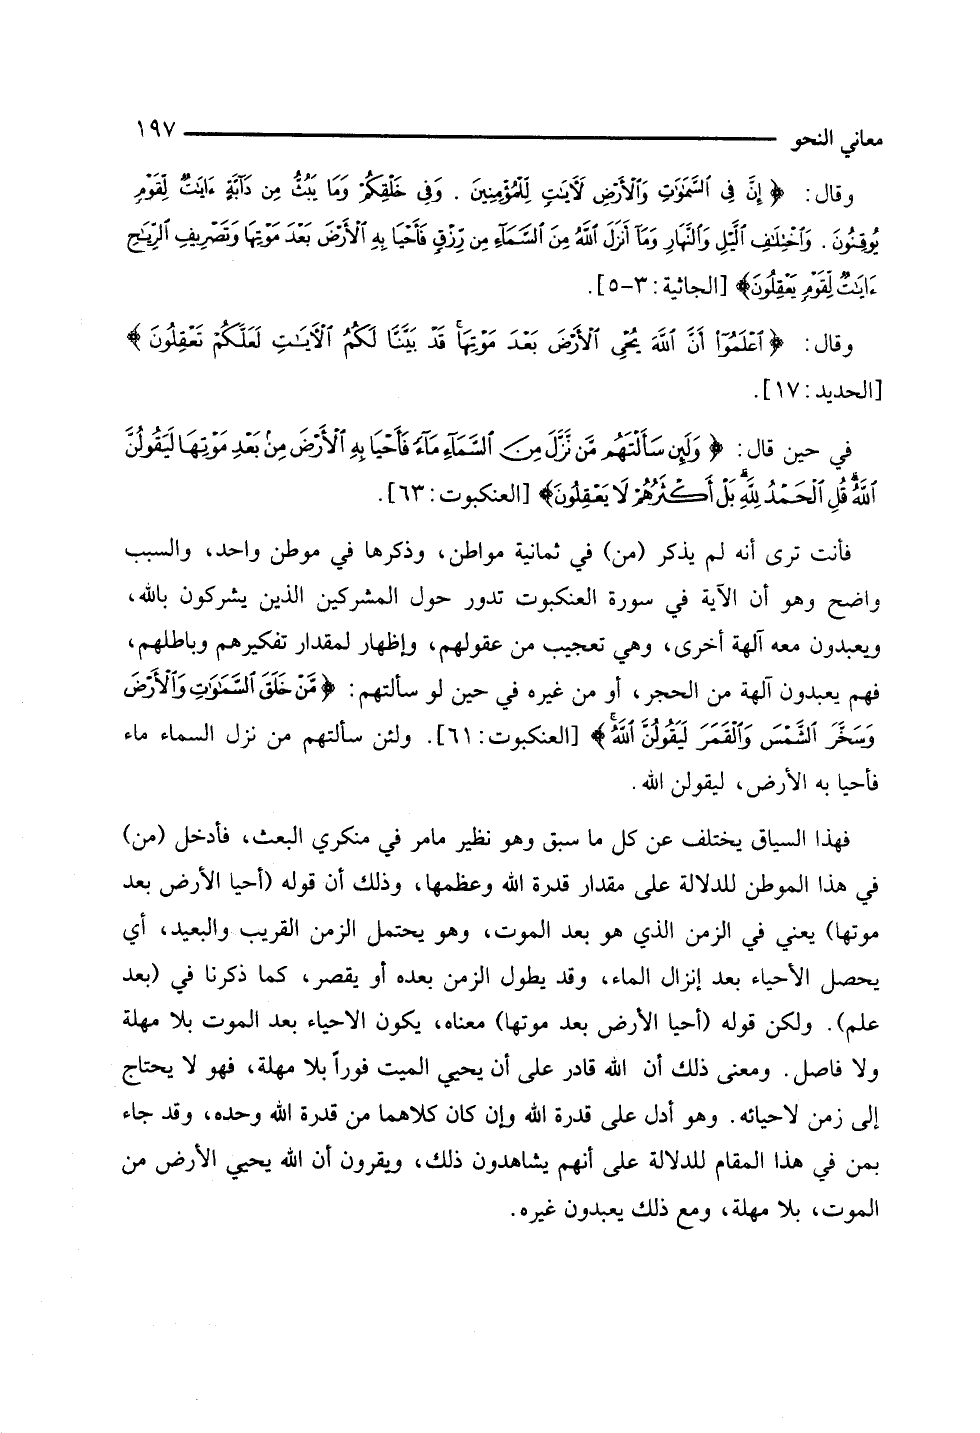 معاني النحو ١٩٧
وقال: ﴿ إِنَّ فِي السَّمَٰوَٰتِ وَالْأَرْضِ لَآيَٰتٍ لِّلْمُؤْمِنِينَ . وَفِي خَلْقِكُمْ وَمَا يَبُثُّ مِن دَآبَّةٍ ءَايَٰتٌ لِّقَوْمٍ
يُوقِنُونَ . وَاخْتِلَٰفِ الَّيْلِ وَالنَّهَارِ وَمَآ أَنزَلَ اللَّهُ مِنَ السَّمَآءِ مِن رِّزْقٍ فَأَحْيَا بِهِ الْأَرْضَ بَعْدَ مَوْتِهَا وَتَصْرِيفِ الرِّيَٰحِ
ءَايَٰتٌ لِّقَوْمٍ يَعْقِلُونَ﴾ [الجاثية: ٣-٥].
وقال: ﴿ اعْلَمُوٓا أَنَّ اللَّهَ يُحْيِ الْأَرْضَ بَعْدَ مَوْتِهَا ۚ قَدْ بَيَّنَّا لَكُمُ الْآيَٰتِ لَعَلَّكُمْ تَعْقِلُونَ ﴾
[الحديد: ١٧].
في حين قال: ﴿ وَلَئِن سَأَلْتَهُم مَّن نَّزَّلَ مِنَ السَّمَآءِ مَآءً فَأَحْيَا بِهِ الْأَرْضَ مِنۢ بَعْدِ مَوْتِهَا لَيَقُولُنَّ
اللَّهُ ۚ قُلِ الْحَمْدُ لِلَّهِ ۚ بَلْ أَكْثَرُهُمْ لَا يَعْقِلُونَ﴾ [العنكبوت: ٦٣].
فأنت ترى أنه لم يذكر (من) في ثمانية مواطن، وذكرها في موطن واحد، والسبب
واضح وهو أن الآية في سورة العنكبوت تدور حول المشركين الذين يشركون بالله،
ويعبدون معه آلهة أخرى، وهي تعجيب من عقولهم، وإظهار لمقدار تفكيرهم وباطلهم،
فهم يعبدون آلهة من الحجر، أو من غيره في حين لو سألتهم: ﴿ مَّنْ خَلَقَ السَّمَٰوَٰتِ وَالْأَرْضَ
وَسَخَّرَ الشَّمْسَ وَالْقَمَرَ لَيَقُولُنَّ اللَّهُ ۖ ﴾ [العنكبوت: ٦١]. ولئن سألتهم من نزل السماء ماء
فأحيا به الأرض، ليقولن الله.
فهذا السياق يختلف عن كل ما سبق وهو نظير مامر في منكري البعث، فأدخل (من)
في هذا الموطن للدلالة على مقدار قدرة الله وعظمها، وذلك أن قوله (أحيا الأرض بعد
موتها) يعني في الزمن الذي هو بعد الموت، وهو يحتمل الزمن القريب والبعيد، أي
يحصل الأحياء بعد إنزال الماء، وقد يطول الزمن بعده أو يقصر، كما ذكرنا في (بعد
علم). ولكن قوله (أحيا الأرض بعد موتها) معناه، يكون الاحياء بعد الموت بلا مهلة
ولا فاصل. ومعنى ذلك أن الله قادر على أن يحيي الميت فوراً بلا مهلة، فهو لا يحتاج
إلى زمن لاحيائه. وهو أدل على قدرة الله وإن كان كلاهما من قدرة الله وحده، وقد جاء
بمن في هذا المقام للدلالة على أنهم يشاهدون ذلك، ويقرون أن الله يحيي الأرض من
الموت، بلا مهلة، ومع ذلك يعبدون غيره.